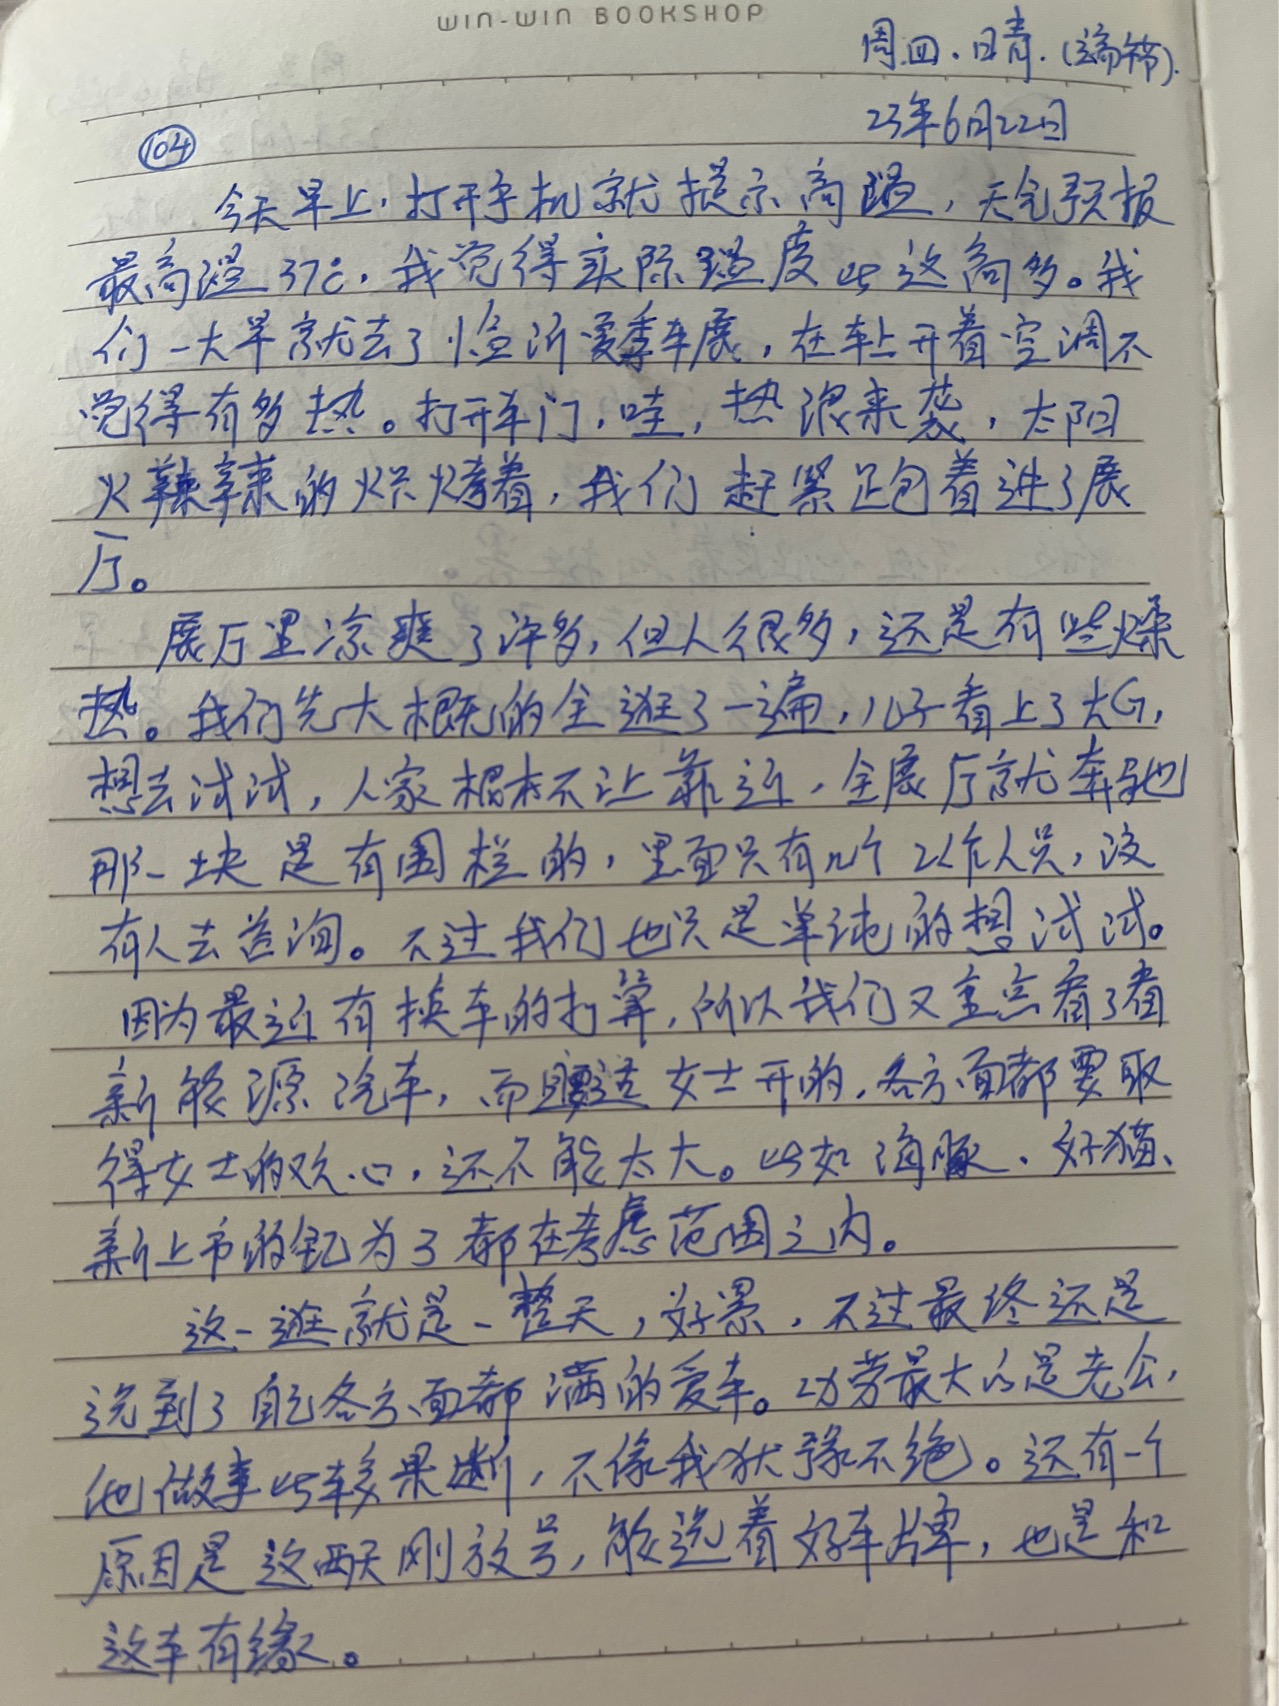 WIN-WIN BOOKSHOP
周四.日晴.(端午节).
23年6月22日
104
今天早上,打开手机就提示高温,天气预报
最高温37℃,我觉得实际温度比这高多。我
们一大早就去了临沂夏季车展,在车上开着空调不
觉得有多热。打开车门,哇,热浪来袭,太阳
火辣辣的烘烤着,我们赶紧跑着进了展
厅。
展厅里凉爽了许多,但人很多,还是有些燥
热。我们先大概的全逛了一遍,儿子看上了大G,
想去试试,人家根本不让靠近,全展厅就奔驰
那一块是有围栏的,里面只有几个工作人员,没
有人去咨询。不过我们也只是单纯的想试试。
因为最近有换车的打算,所以我们又重点看了看
新能源汽车,而且要适女士开的,各方面都要取
得女士的欢心,还不能太大。比如海豚、好猫、
新上市的钇为3都在考虑范围之内。
这一逛就是一整天,好累,不过最终还是
选到了自己各方面都满的爱车。功劳最大的是老公,
他做事比较果断,不像我犹豫不绝。还有一个
原因是这两天刚放号,能选着好车牌,也是和
这车有缘。